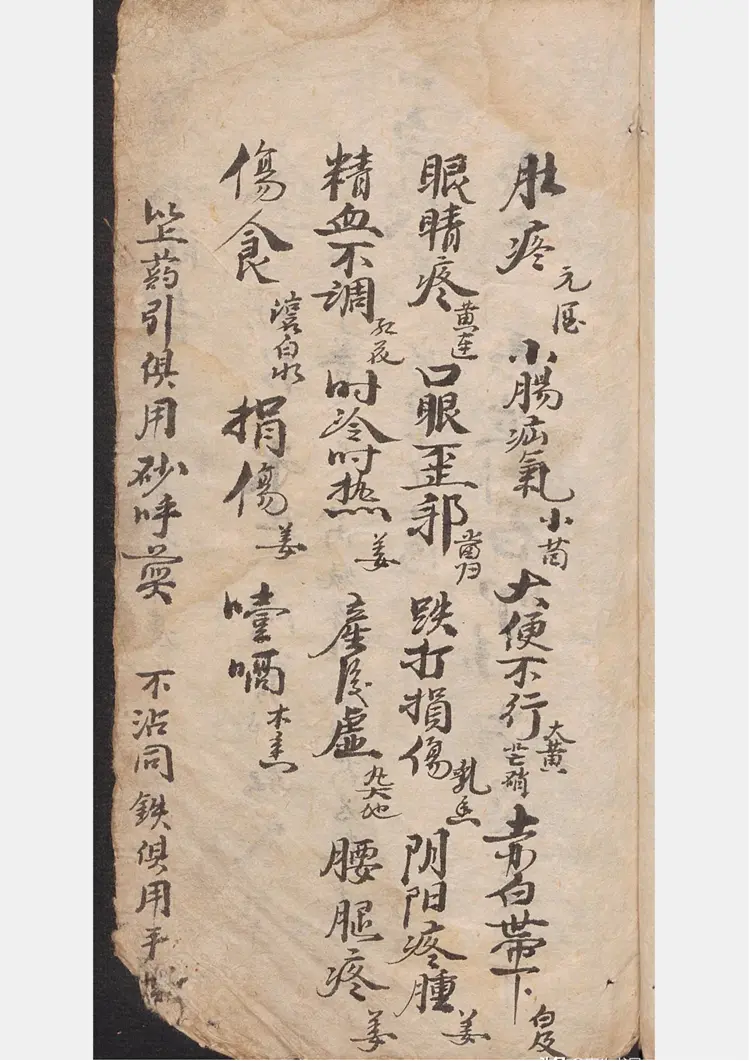 肚疼 元酒 小腸疝氣 小茴 大便不行 大黄 芒硝 赤白帶下 白及
眼睛疼 黄連 口眼歪邪 當归 跌打損傷 乳香 阴阳疼腫 姜
精血不调 紅花 时冷时热 姜 産後虛 九大地 腰腿疼 姜
傷食 滚白水 損傷 姜 噎嗝 木香
以上葯引俱用砂呼煎 不沾同鉄俱用手